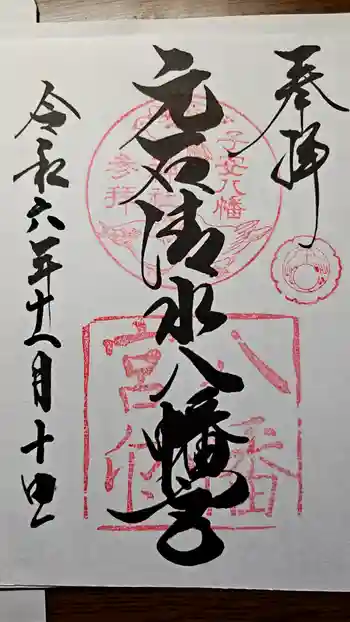 奉拝
元石清水八幡宮
子安八幡
参拝
八幡
宮
令和六年十一月十四日